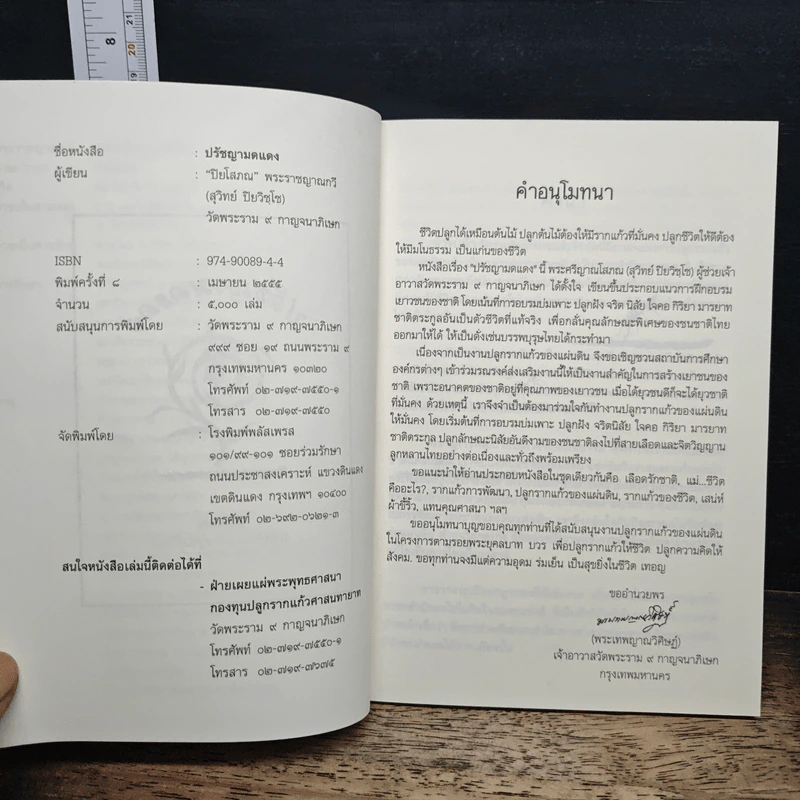 8
21
20
19
ชื่อหนังสือ : ปรัชญามดแดง
ผู้เขียน : "ปิยโสภณ" พระราชญาณกวี
(สุวิทย์ ปิยวิชฺโช)
วัดพระราม ๙ กาญจนาภิเษก
ISBN : 974-90089-4-4
พิมพ์ครั้งที่ ๘ : เมษายน ๒๕๕๕
จำนวน : ๕,๐๐๐ เล่ม
สนับสนุนการพิมพ์โดย : วัดพระราม ๙ กาญจนาภิเษก
๙๙๙ ซอย ๑๙ ถนนพระราม ๙
กรุงเทพมหานคร ๑๐๓๒๐
โทรศัพท์ ๐๒-๗๑๙-๗๕๕๐-๑
โทรสาร ๐๒-๗๑๙-๗๕๕๐
จัดพิมพ์โดย : โรงพิมพ์พลัสเพรส
๑๐๑/๙๙-๑๐๑ ซอยร่วมรักษา
ถนนประชาสงเคราะห์ แขวงดินแดง
เขตดินแดง กรุงเทพฯ ๑๐๔๐๐
โทรศัพท์ ๐๒-๖๙๒-๐๖๒๑-๓
สนใจหนังสือเล่มนี้ติดต่อได้ที่
- ฝ่ายเผยแผ่พระพุทธศาสนา
กองทุนปลูกรากแก้วศาสนทายาท
วัดพระราม ๙ กาญจนาภิเษก
โทรศัพท์ ๐๒-๗๑๙-๗๕๕๐-๑
โทรสาร ๐๒-๗๑๙-๗๖๗๕
คำอนุโมทนา
ชีวิตปลูกได้เหมือนต้นไม้ ปลูกต้นไม้ต้องให้มีรากแก้วที่มั่นคง ปลูกชีวิตให้ดีต้อง
ให้มีมโนธรรม เป็นแก่นของชีวิต
หนังสือเรื่อง "ปรัชญามดแดง" นี้ พระศรีญาณโสภณ (สุวิทย์ ปิยวิชฺโช) ผู้ช่วยเจ้า
อาวาสวัดพระราม ๙ กาญจนาภิเษก ได้ตั้งใจ เขียนขึ้นประกอบแนวการฝึกอบรม
เยาวชนของชาติ โดยเน้นที่การอบรมบ่มเพาะ ปลูกฝัง จริต นิสัย ใจคอ กิริยา มารยาท
ชาติตระกูลอันเป็นตัวชีวิตที่แท้จริง เพื่อกลั่นคุณลักษณะพิเศษของชนชาติไทย
ออกมาให้ได้ ให้เป็นดั่งเช่นบรรพบุรุษไทยได้กระทำมา
เนื่องจากเป็นงานปลูกรากแก้วของแผ่นดิน จึงขอเชิญชวนสถาบันการศึกษา
องค์กรต่างๆ เข้าร่วมรณรงค์ส่งเสริมงานนี้ให้เป็นงานสำคัญในการสร้างเยาวชนของ
ชาติ เพราะอนาคตของชาติอยู่ที่คุณภาพของเยาวชน เมื่อได้ยุวชนดีก็จะได้ยุวชาติ
ที่มั่นคง ด้วยเหตุนี้ เราจึงจำเป็นต้องมาร่วมใจกันทำงานปลูกรากแก้วของแผ่นดิน
ให้มั่นคง โดยเริ่มต้นที่การอบรมบ่มเพาะ ปลูกฝัง จริตนิสัย ใจคอ กิริยา มารยาท
ชาติตระกูล ปลูกลักษณะนิสัยอันดีงามของชนชาติลงไปที่สายเลือดและจิตวิญญาณ
ลูกหลานไทยอย่างต่อเนื่องและทั่วถึงพร้อมเพรียง
ขอแนะนำให้อ่านประกอบหนังสือในชุดเดียวกันคือ เลือดรักชาติ, แม่...ชีวิต
คืออะไร?, รากแก้วการพัฒนา, ปลูกรากแก้วของแผ่นดิน, รากแก้วของชีวิต, เสน่ห์
ผ้าขี้ริ้ว, แทนคุณศาสนา ฯลฯ
ขออนุโมทนาบุญขอบคุณทุกท่านที่ได้สนับสนุนงานปลูกรากแก้วของแผ่นดิน
ในโครงการตามรอยพระยุคลบาท บวร เพื่อปลูกรากแก้วให้ชีวิต ปลูกความคิดให้
สังคม. ขอทุกท่านจงมีแต่ความอุดม ร่มเย็น เป็นสุขยิ่งในชีวิต เทอญ
ขออำนวยพร
(พระเทพญาณวิศิษฏ์)
เจ้าอาวาสวัดพระราม ๙ กาญจนาภิเษก
กรุงเทพมหานคร